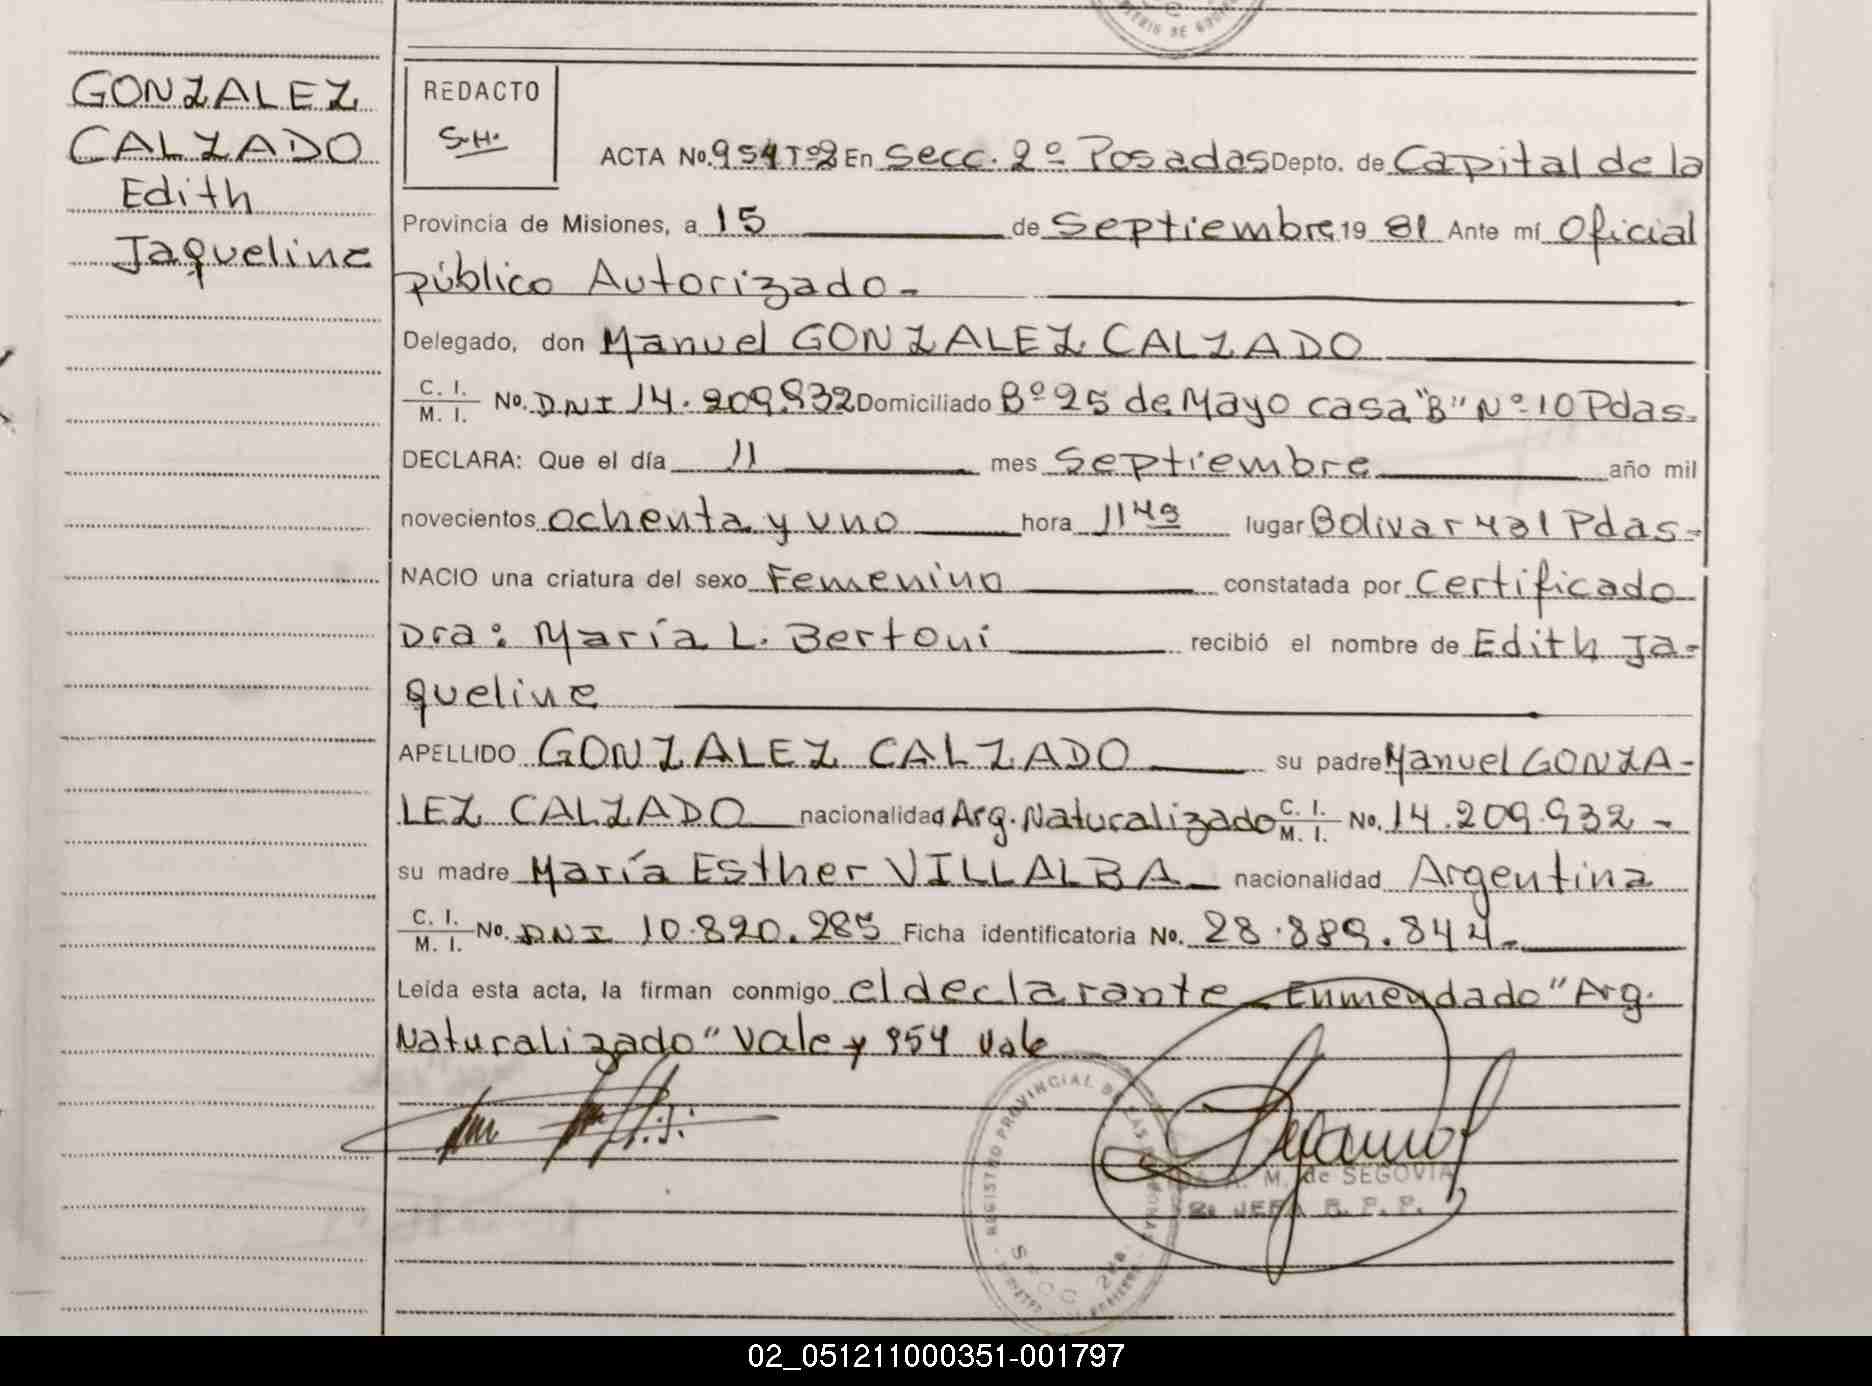 GONZALEZ
CALZADO
Edith
Jaqueline
REDACTO
S.H.
ACTA No. 954 Tº2 En Secc. 2º Posadas Depto. de Capital de la
Provincia de Misiones, a 15 de Septiembre 19 81 Ante mí Oficial
público Autorizado-
Delegado, don Manuel GONZALEZ CALZADO
C. I.
M. I. No. DNI 14.209.932 Domiciliado Bº 25 de Mayo casa "B" Nº 10 Pdas-
DECLARA: Que el día 11 mes Septiembre año mil
novecientos ochenta y uno hora 1145 lugar Bolivar 431 Pdas-
NACIO una criatura del sexo Femenino constatada por Certificado
Dra: María L. Bertoni recibió el nombre de Edith Ja-
queline
APELLIDO GONZALEZ CALZADO su padre Manuel GONZA-
LEZ CALZADO nacionalidad Arg. Naturalizado C. I. M. I. No. 14.209.932-
su madre María Esther VILLALBA nacionalidad Argentina
C. I.
M. I. No. DNI 10.820.285 Ficha identificatoria No. 28.889.844-
Leída esta acta, la firman conmigo el declarante Enmendado "Arg.
Naturalizado" Vale y 954 Vale
REGISTRO PROVINCIAL DE LAS PERSONAS
A. M. de SEGOVIA
JEFA
02_051211000351-001797